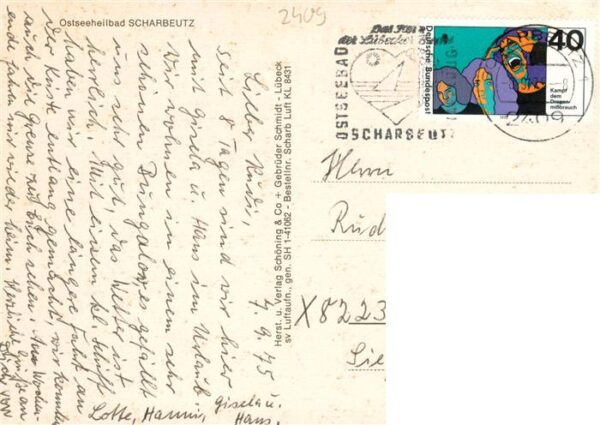 Ostseeheilbad SCHARBEUTZ
2409
7.9.75
Lieber Rudi,
Seit 8 Tagen sind wir hier
mit Gisela u. Hans im Urlaub.
Wir wohnen in einem sehr
schönen Bungalow, es gefällt
uns sehr gut, das Wetter ist
herrlich. Mit einem kl. Schiff
haben wir eine längere Fahrt an
der Küste entlang gemacht, wir konnten
auch die Grenze mit sehen. Am Wochen-
ende fahren wir wieder heim. Herzliche Grüße an
Lotte, Hanni, Gisela u.
Hans.
Herst. u. Verlag Schöning & Co + Gebrüder Schmidt - Lübeck
sv Luftaufn., gen. SH 1-41062 - Bestellnr. Scharb Luft KL 8431
der Lübecker
OSTSEEBAD
SCHARBEUTZ
2409
Deutsche Bundespost
40
Kampf
dem
Drogen-
mißbrauch
Herrn
Rud
X8223
Sie